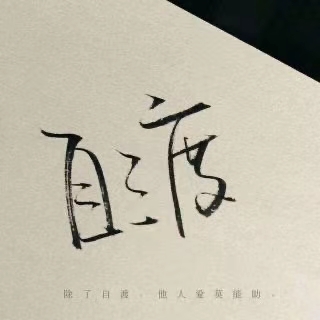 自渡
除了自渡，他人爱莫能助。